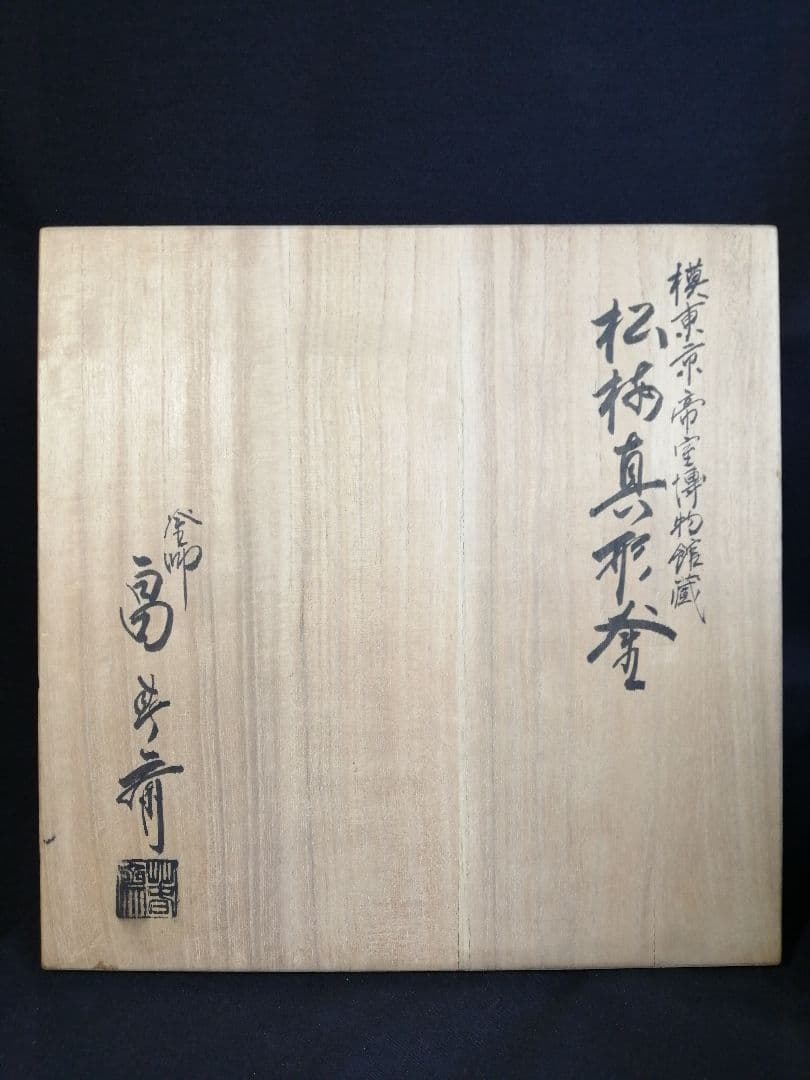 模東京帝室博物館蔵
松梅真形釜
釜師
畠春斎